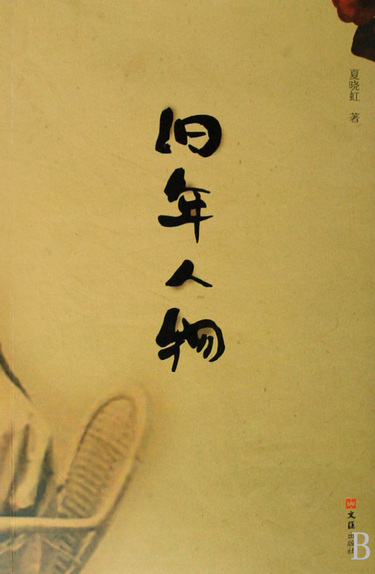 夏晓虹 著
旧年人物
文汇出版社
B